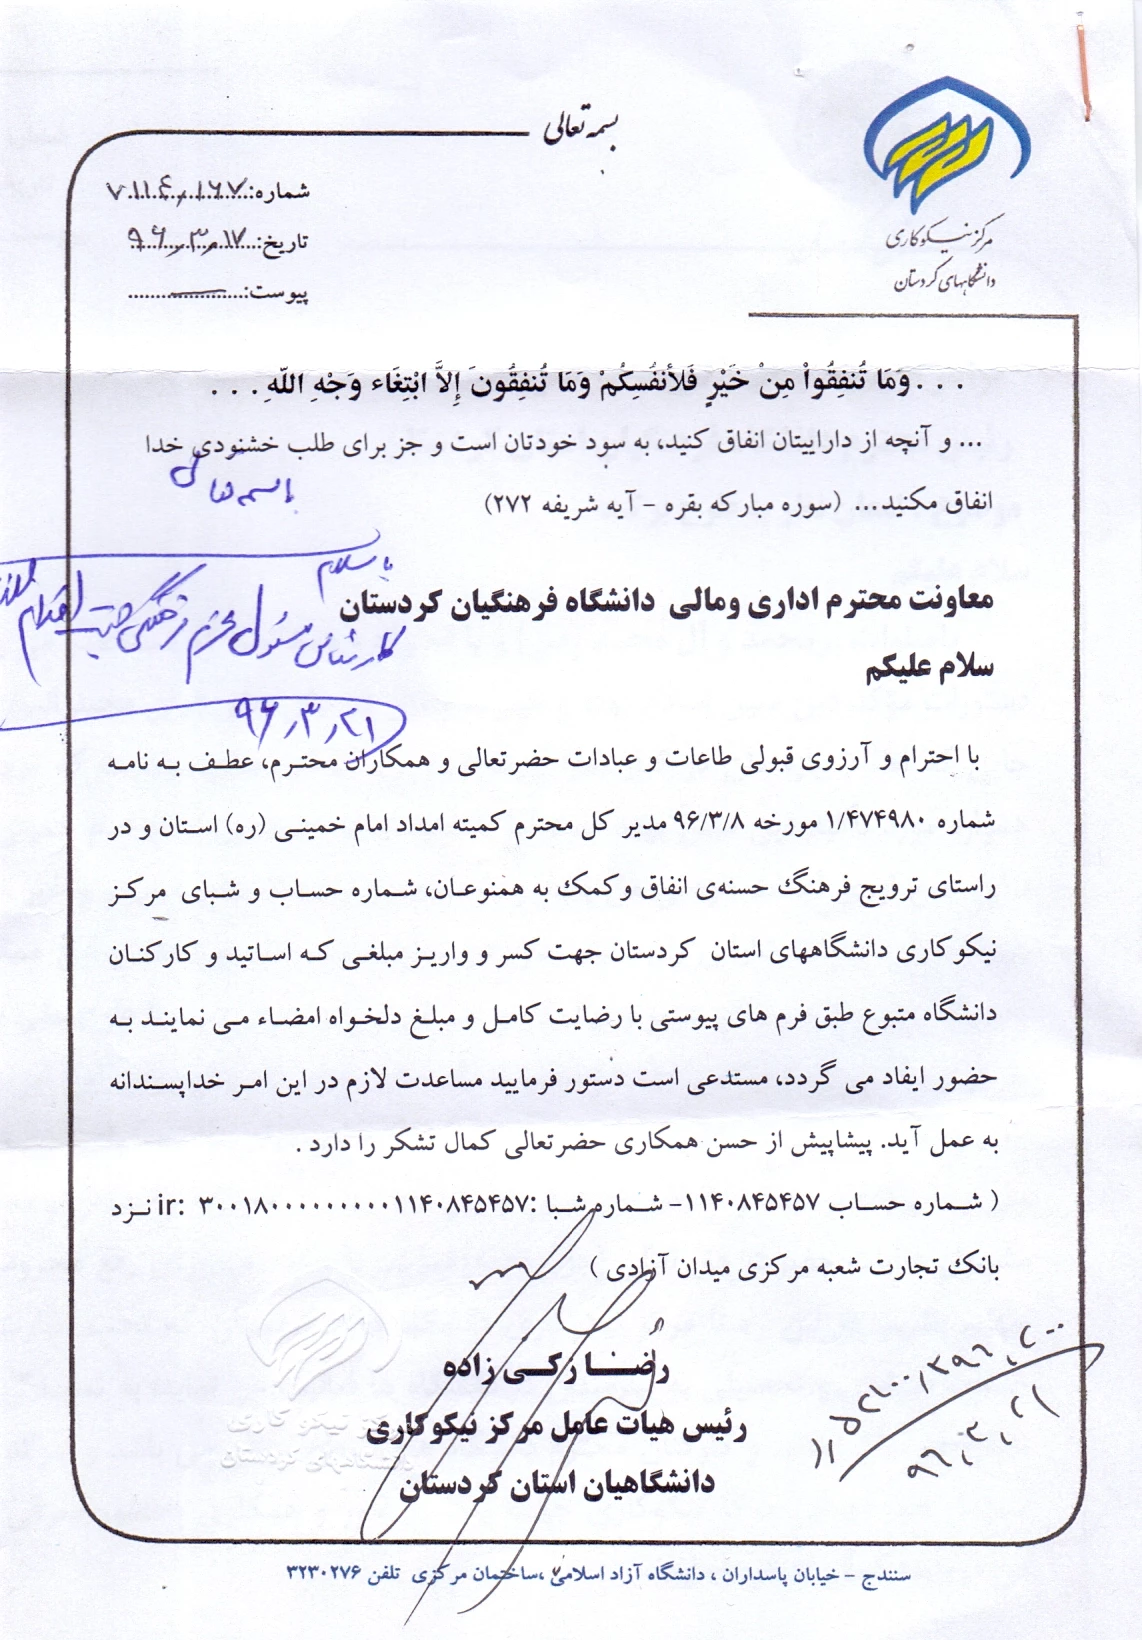 بسمه تعالی
مرکز نیکوکاری
دانشگاههای کردستان
شماره: ۷۱۱۴٫۱۶۷
تاریخ: ۹۶٫۳٫۱۷
پیوست: ــ
. . . وَمَا تُنفِقُواْ مِنْ خَيْرٍ فَلأنفُسِكُمْ وَمَا تُنفِقُونَ إِلاَّ ابْتِغَاء وَجْهِ اللّهِ . . .
... و آنچه از داراییتان انفاق کنید، به سود خودتان است و جز برای طلب خشنودی خدا
انفاق مکنید... (سوره مبارکه بقره - آیه شریفه ۲۷۲)
باسمه تعالی
با سلام
کارشناس مسئول محترم فرهنگی جهت اقدام
۹۶٫۳٫۲۱
معاونت محترم اداری ومالی دانشگاه فرهنگیان کردستان
سلام علیکم
با احترام و آرزوی قبولی طاعات و عبادات حضرتعالی و همکاران محترم، عطف به نامه
شماره ۱/۴۷۴۹۸۰ مورخه ۹۶/۳/۸ مدیر کل محترم کمیته امداد امام خمینی (ره) استان و در
راستای ترویج فرهنگ حسنه‌ی انفاق وکمک به همنوعان، شماره حساب و شبای مرکز
نیکوکاری دانشگاههای استان کردستان جهت کسر و واریز مبلغی که اساتید و کارکنان
دانشگاه متبوع طبق فرم های پیوستی با رضایت کامل و مبلغ دلخواه امضاء می نمایند به
حضور ایفاد می گردد، مستدعی است دستور فرمایید مساعدت لازم در این امر خداپسندانه
به عمل آید. پیشاپیش از حسن همکاری حضرتعالی کمال تشکر را دارد .
( شماره حساب ۱۱۴۰۸۴۵۴۵۷- شماره شبا :ir: ۳۰۰۱۸۰۰۰۰۰۰۰۰۰۰۱۱۴۰۸۴۵۴۵۷ نزد
بانک تجارت شعبه مرکزی میدان آزادی )
رضا زکی زاده
رئیس هیات عامل مرکز نیکوکاری
دانشگاهیان استان کردستان
۹۶٫۳٫۲۱
مرکز نیکوکاری
دانشگاههای کردستان
سنندج - خیابان پاسداران ، دانشگاه آزاد اسلامی ،ساختمان مرکزی تلفن ۳۲۳۰۲۷۶